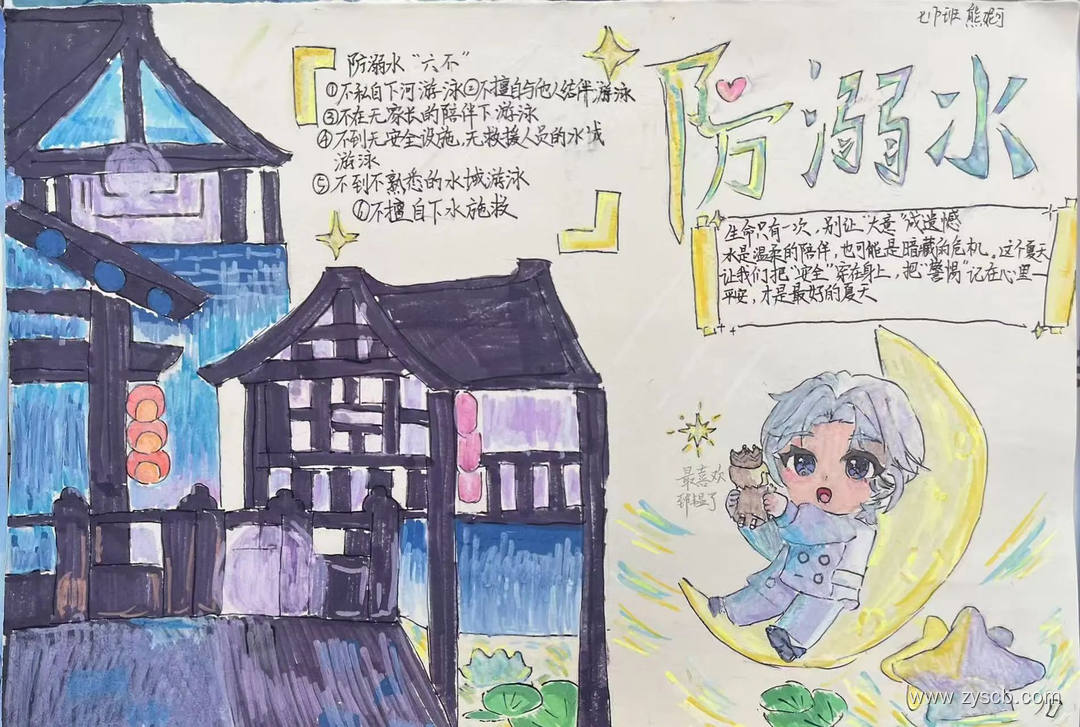 班 熊
防溺水
防溺水“六不”
①不私自下河游泳②不擅自与他人结伴游泳
③不在无家长的陪伴下游泳
④不到无安全设施,无救援人员的水域
游泳
⑤不到不熟悉的水域游泳
⑥不擅自下水施救
生命只有一次,别让“大意”成遗憾
水是温柔的陪伴,也可能是暗藏的危机。这个夏天
让我们把“安全”穿在身上,把“警惕”记在心里—
平安,才是最好的夏天
最喜欢
了
www.zyscb.com